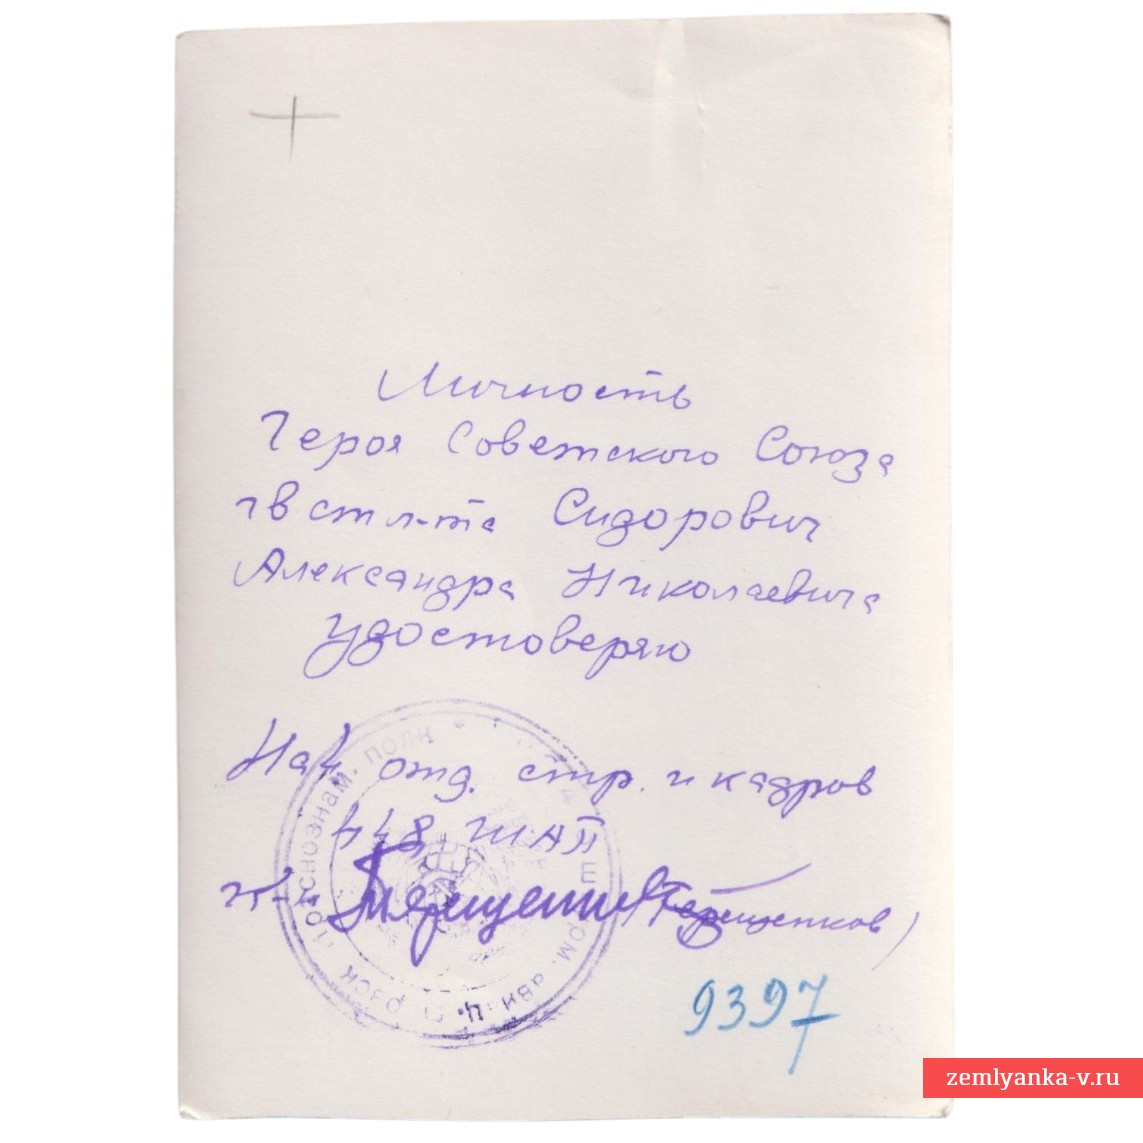 Личность
Героя Советского Союза
гв ст л-та Сидорович
Александра Николаевича
удостоверяю
Нач отд. стр. и кадров
448 ШАП
к-н Терещенков (Терещенков)
краснознам. полк
9397
zemlyanka-v.ru